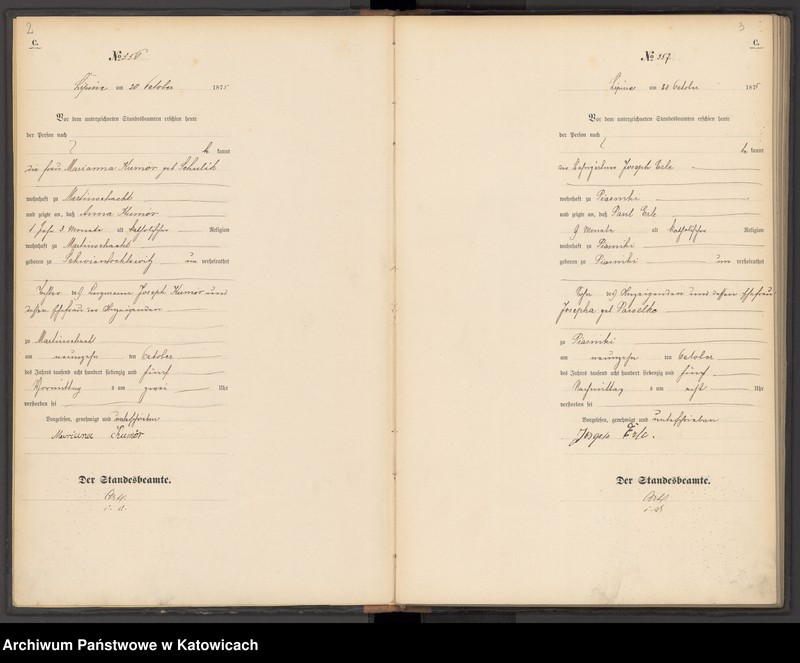 2
C.
No 356
Lipine am 20 October 1875
Vor dem unterzeichneten Standesbeamten erschien heute
der Person nach
kannt
die Frau Marianna Kumor geb Schulik
wohnhaft zu Martinschacht
und zeigte an, daß Anna Kumor
1 Jahr 3 Monate alt katholischer Religion
wohnhaft zu Martinschacht
geboren zu Schwientochlowitz un verheirathet
Tochter des Bergmann Joseph Kumor und
dessen Ehefrau der Anzeigenden
zu Martinschacht
am neunzehn ten October
des Jahres tausend acht hundert siebenzig und fünf
Vormittag s um zwei Uhr
verstorben sei
Vorgelesen, genehmigt und unterschrieben
Marianna Kumor
Der Standesbeamte.
3
C.
No 357
Lipine am 20 October 1875
Vor dem unterzeichneten Standesbeamten erschien heute
der Person nach
be kannt
der Joseph Erle
wohnhaft zu Piasniki
und zeigte an, daß Paul Erle
9 Monate alt katholischer Religion
wohnhaft zu Piasniki
geboren zu Piasniki un verheirathet
Sohn des Anzeigenden und dessen Ehefrau
Josepha geb
zu Piasniki
am neunzehn ten October
des Jahres tausend acht hundert siebenzig und fünf
Nachmittag s um acht Uhr
verstorben sei
Vorgelesen, genehmigt und unterschrieben
Erle.
Der Standesbeamte.
Archiwum Państwowe w Katowicach